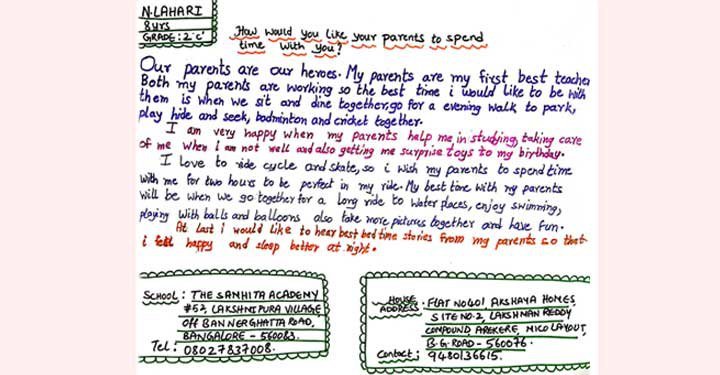 N.LAHARI
8 yrs
GRADE: 2 'C'
How would you like your parents to spend
time with you?
Our parents are our heroes. My parents are my first best teacher
Both my parents are working so the best time i would like to be with
them is when we sit and dine together, go for a evening walk to park,
play hide and seek, badminton and cricket together.
I am very happy when my parents help me in studying, taking care
of me when i am not well and also getting me surprise toys to my birthday.
I love to ride cycle and skate, so i wish my parents to spend time
with me for two hours to be perfect in my ride. My best time with my parents
will be when we go together for a long ride to water places, enjoy swimming,
playing with balls and balloons also take more pictures together and have fun.
At last i would like to hear best bed time stories from my parents so that
i fell happy and sleep better at night.
SCHOOL: THE SANHITA ACADEMY
#52, LAKSHNIPURA VILLAGE
Off BANNERGHATTA ROAD,
BANGALORE - 560083.
Tel: 08027837008.
HOUSE ADDRESS: FLAT NO401 AKSHAYA HOMES
SITE NO.2, LAKSHMAN REDDY
COMPOUND, AREKERE, MICO LAYOUT,
B.G. ROAD - 560076.
Contact: 9480136615.